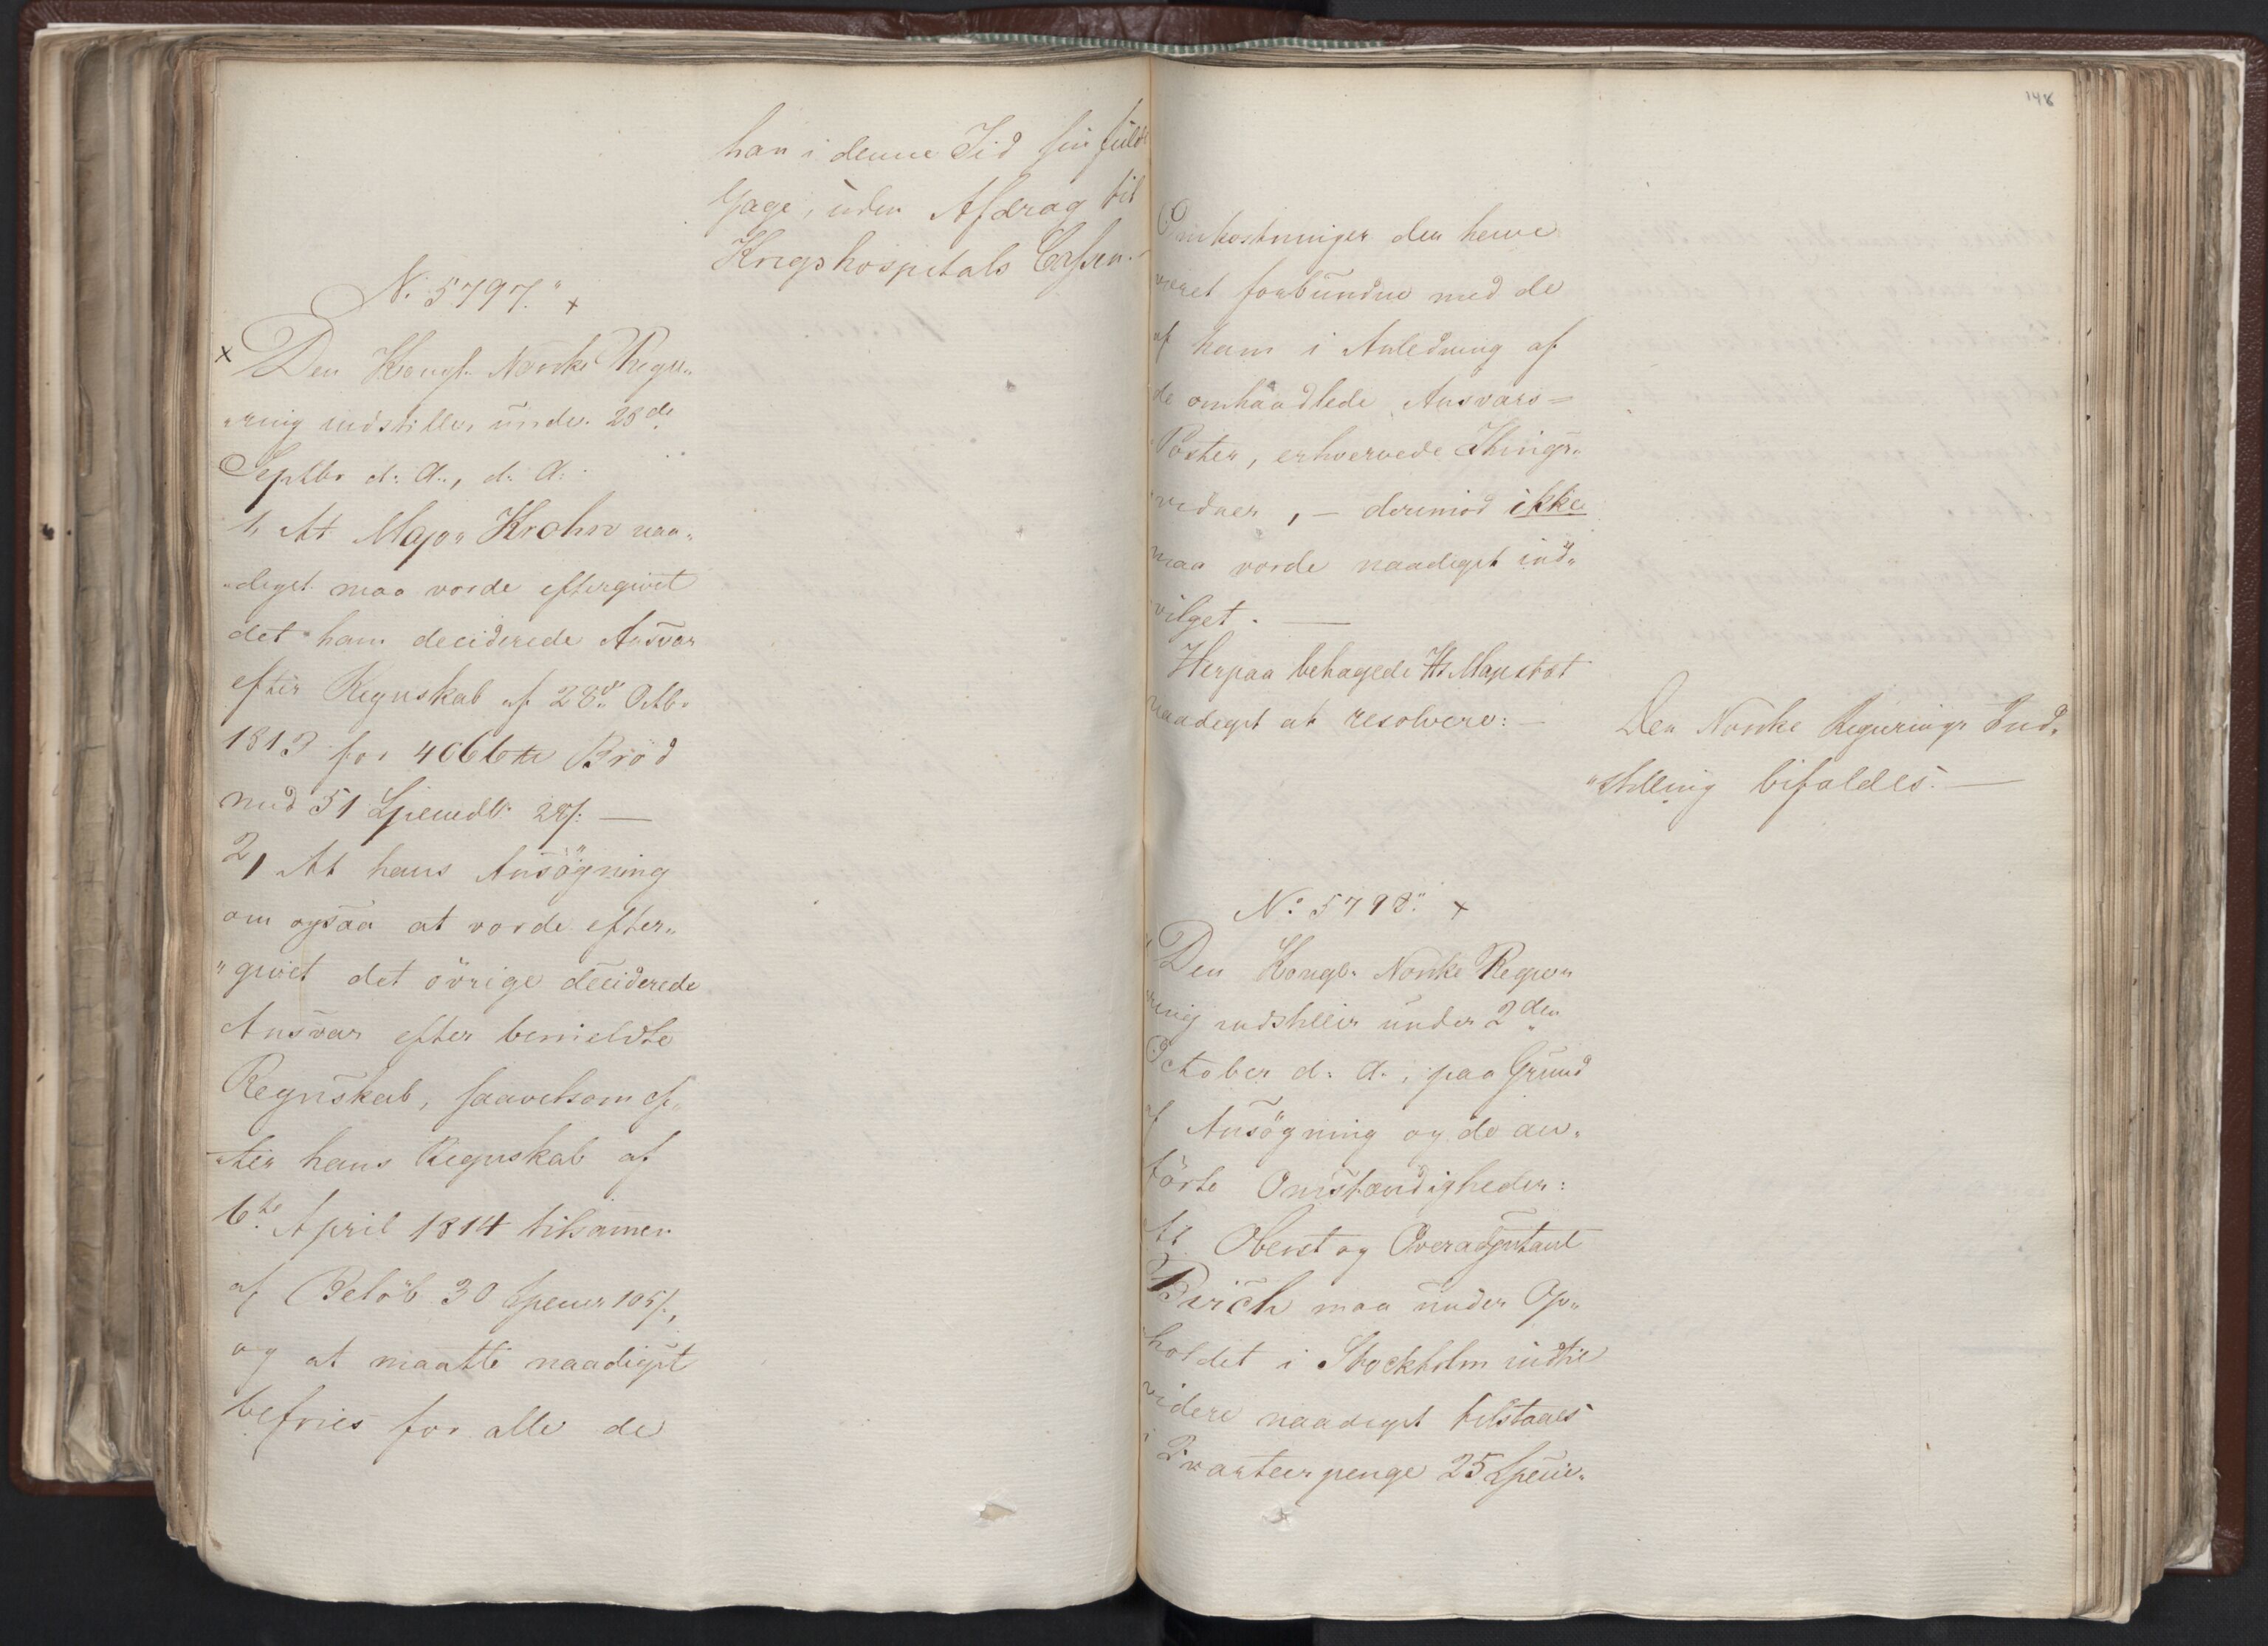 han i denne Tid sin fulde
Gage, uden Afdrag til
Krigshospitals Cassen.
No 5797. x
x Den Kongl. Norske Regje„
„ring indstiller under 28de
Septbr d: A., d: A:
1, At Major Krohn naa„
„digst maa vorde eftergivet
det ham deciderede Ansvar
efter Regnskab af 28de Octbr
1813 for 4066 Brød
med 51 Speciedlr 28/: —
2, At hans Ansögning
om ogsaa at vorde efter„
„givet det övrige deciderede
Ansvar efter bemeldte
Regnskab, saavelsom ef„
„ter hans Regnskab af
6te April 1814 tilsamen
af Belöb 30 Specier 105/:,
og at maatte naadigst
befries for alle de
148
Omkostninger der have
været forbundne med de
af ham i Anledning af
de omhandlede Ansvars=
Poster, erhvervede Things„
vidner, — derimod ikke
maa vorde naadigst ind„
vilget. —
Herpaa behagede Hs Majestæt
naadigst at resolvere: —
Den Norske Regjerings Ind„
„stilling bifaldes. —
No 5798. x
Den Kongl. Norske Regje„
ring indstiller under 2den
October d: A., paa Grund
af Ansögning og de an„
förte Omstændigheder:
At Oberst og Overadjutant
Birch maa under Op„
holdet i Stockholm indtil
videre naadigst tilstaaes
i Qvarteerpenge 25 Specie„